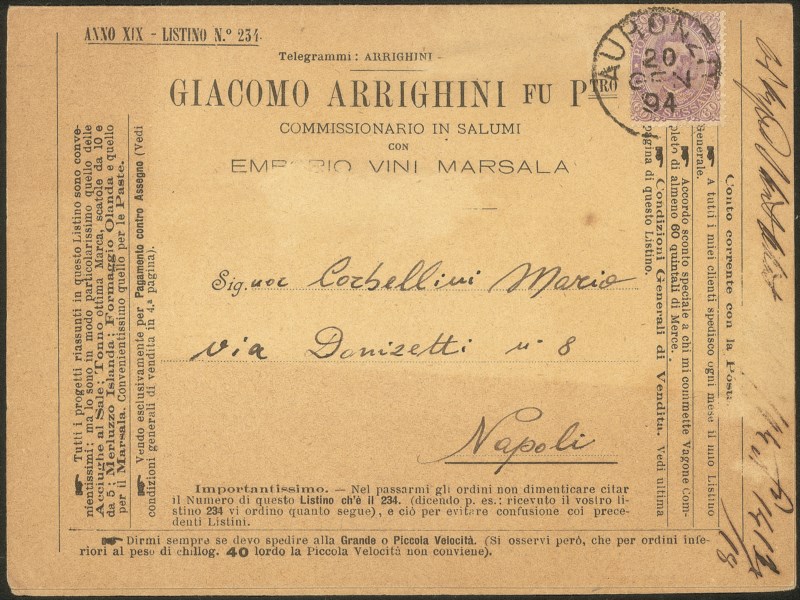 ANNO XIX - LISTINO N.º 234
Telegrammi: ARRIGHINI -
GIACOMO ARRIGHINI FU PTRO
COMMISSIONARIO IN SALUMI
CON
VINI MARSALA
AURONZO
20
GEN
94
Sig.nor Corbellini Mario
via Donizetti n. 8
Napoli
Importantissimo. — Nel passarmi gli ordini non dimenticare citar
il Numero di questo Listino ch'è il 234. (dicendo p. es.: ricevuto il vostro li-
stino 234 vi ordino quanto segue), e ciò per evitare confusione coi prece-
denti Listini.
☛ Dirmi sempre se devo spedire alla Grande o Piccola Velocità. (Si osservi però, che per ordini infe-
riori al peso di chillog. 40 lordo la Piccola Velocità non conviene).
☛ Tutti i progetti riassunti in questo Listino sono conve-
nientissimi; ma lo sono in modo particolarissimo quello delle
Acciughe al Sale; Tonno ottima Marca, scatole da 10 e
da 5; Merluzzo Islanda; Formaggio Olanda e quello
per il Marsala. Convenientissimo quello per le Paste.
☛ Vendo esclusivamente per Pagamento contro Assegno (Vedi
condizioni generali di vendita in 4.ª pagina).
Conto corrente con la Posta
☛ A tutti i miei clienti spedisco ogni mese il mio Listino
Generale.
☛ Accordo sconto speciale a chi mi commette Vagone Com-
pleto di almeno 60 quintali di Merce.
☛ Condizioni Generali di Vendita. Vedi ultima
pagina di questo Listino.